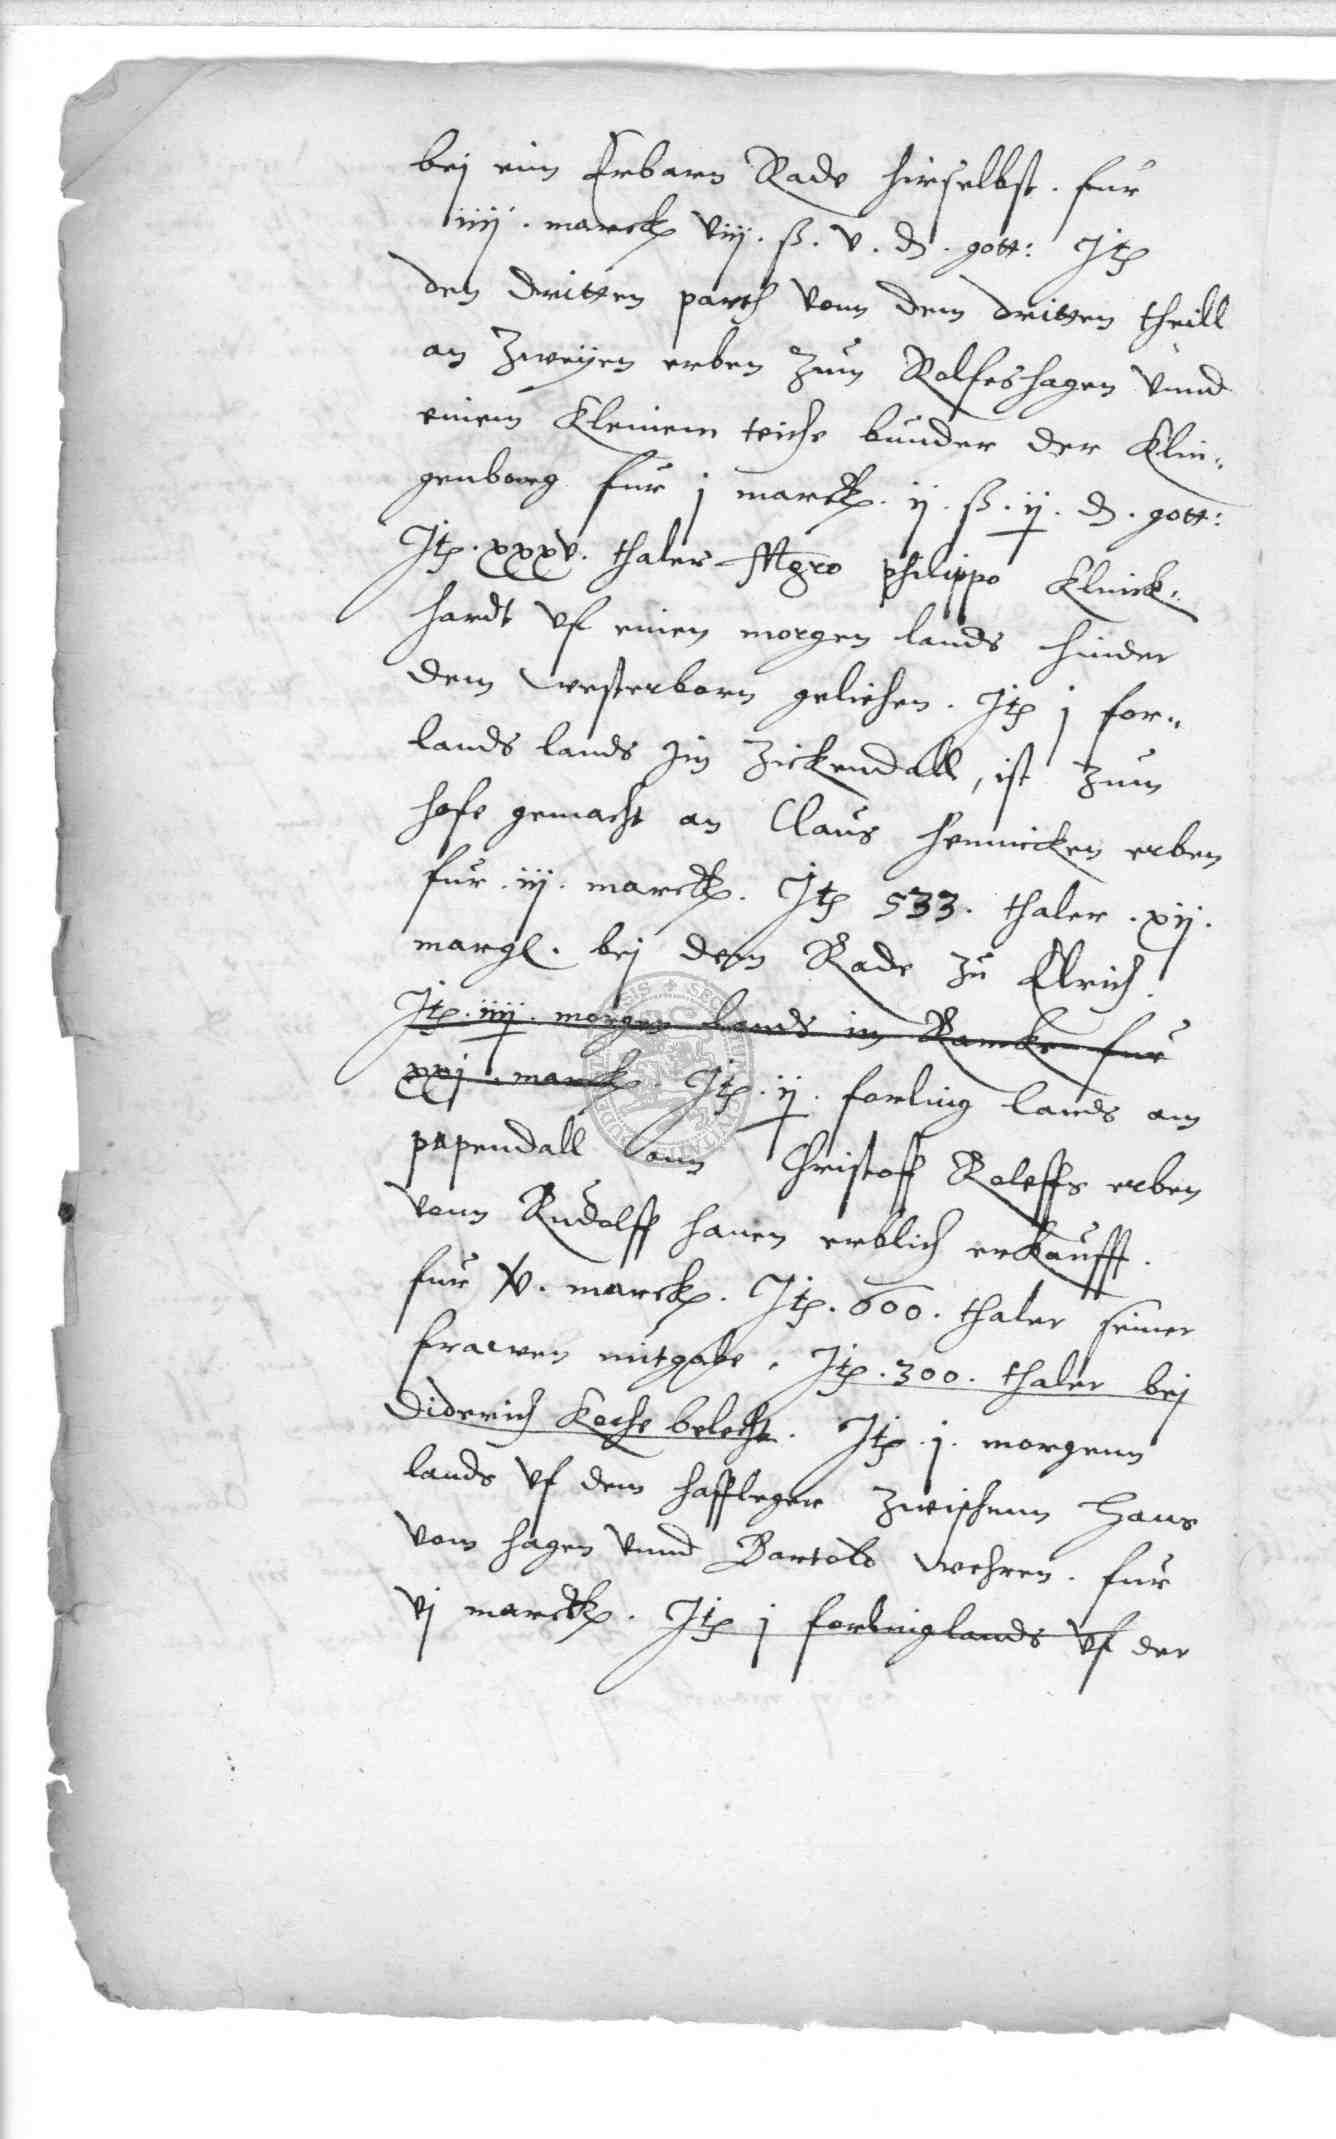 bej eim Erbarn Rade hirselbst. fur
iiij. marck viij. ß. v. d. gott: Jtem
den dritten parth vonn dem dritten theill
an Zweyen erben zum Rolfeshagen vnnd
einem kleinem teiche bunder der Klin-
genborg fur j marck. ij. ß. ij. d. gott:
Jtem. xxxv. thaler Mgro philippo Klinck-
hardt vf einen morgen lands hinder
dem westerborn geliehen. Jtem j for-
lands lands Jm Zickendall, ist zum
hofe gemacht an Claus Hennicken erben
fur. iij. marck. Jtem 533. thaler. xij.
margl. bej dem Rade zu Elrich.
Jtem. iiij. morgen lands in Ramke fur
xxj. marck. Jtem. ij. forling lands am
papendall ann Christoff Roleffs erben
vonn Rudolff hanen erblich erkaufft.
fur xv. marck. Jtem. 600. thaler seiner
frawen mitgabe. Jtem. 300. thaler bej
Diderich Koche belecht. Jtem. j. morgenn
lands vf dem haffleger zwischenn Hans
vom hagen vnnd Bartold wehren. fur
vj marck. Jtem j forlinglands vf der